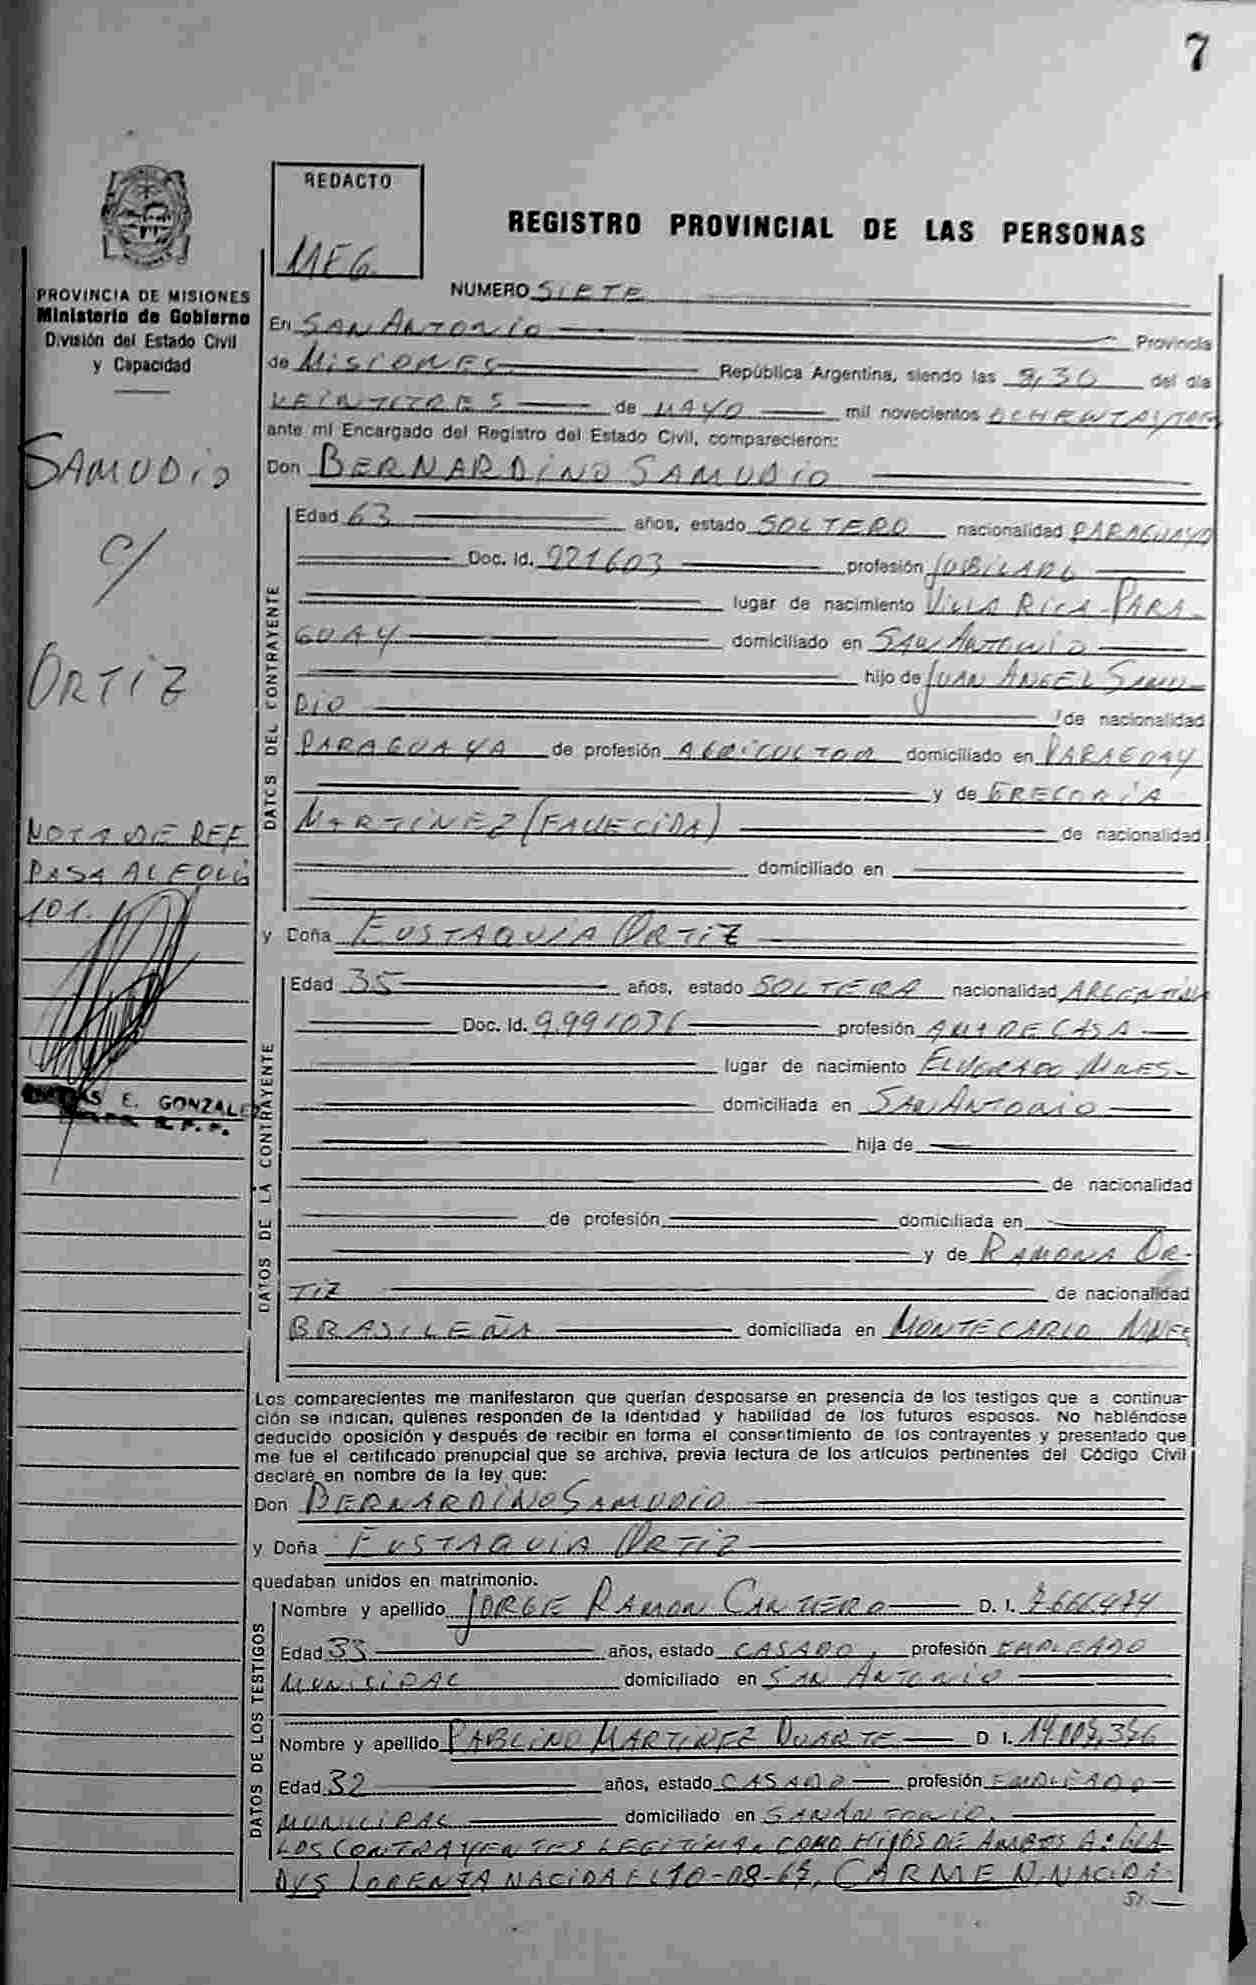 7
REDACTO
MEG.
REGISTRO PROVINCIAL DE LAS PERSONAS
PROVINCIA DE MISIONES
Ministerio de Gobierno
División del Estado Civil
y Capacidad
NUMERO SIETE
En SAN ANTONIO Provincia
de MISIONES República Argentina, siendo las 9,30 del día
VEINTITRES de MAYO mil novecientos OCHENTAYTRES
ante mí Encargado del Registro del Estado Civil, comparecieron:
SAMUDIO
C/
ORTIZ
Don BERNARDINO SAMUDIO
DATOS DEL CONTRAYENTE
Edad 63 años, estado SOLTERO nacionalidad PARAGUAYO
Doc. Id. 921603 profesión JUBILADO
lugar de nacimiento VILLA RICA-PARA-
GUAY domiciliado en SAN ANTONIO
hijo de JUAN ANGEL SAMU-
DIO de nacionalidad
PARAGUAYA de profesión AGRICULTOR domiciliado en PARAGUAY
y de GREGORIA
MARTINEZ (FALLECIDA) de nacionalidad
domiciliado en
NOTA DE REF.
PASA AL FOLIO
101.
E. GONZALEZ
y Doña EUSTAQUIA ORTIZ
DATOS DE LA CONTRAYENTE
Edad 35 años, estado SOLTERA nacionalidad ARGENTINA
Doc. Id. 9.991036 profesión AMA DE CASA
lugar de nacimiento ELDORADO MNES-
domiciliada en SAN ANTONIO
hija de
de nacionalidad
de profesión domiciliada en
y de RAMONA OR-
TIZ de nacionalidad
BRASILEÑA domiciliada en MONTECARLO MNES
Los comparecientes me manifestaron que querían desposarse en presencia de los testigos que a continua-
ción se indican, quienes responden de la identidad y habilidad de los futuros esposos. No habiéndose
deducido oposición y después de recibir en forma el consentimiento de los contrayentes y presentado que
me fue el certificado prenupcial que se archiva, previa lectura de los artículos pertinentes del Código Civil
declaré en nombre de la ley que:
Don BERNARDINO SAMUDIO
y Doña EUSTAQUIA ORTIZ
quedaban unidos en matrimonio.
DATOS DE LOS TESTIGOS
Nombre y apellido JORGE RAMON CANTERO D. I. 7.666.474
Edad 33 años, estado CASADO, profesión EMPLEADO
MUNICIPAL domiciliado en SAN ANTONIO
Nombre y apellido PABLINO MARTINEZ DUARTE D. I. 14.009,376
Edad 32 años, estado CASADO profesión EMPLEADO
MUNICIPAL domiciliado en SAN ANTONIO.
LOS CONTRAYENTES LEGITIMAN COMO HIJOS DE AMBOS A: GLA
DYS LORENZA NACIDA EL 10-08-67, CARMEN. NACIDA